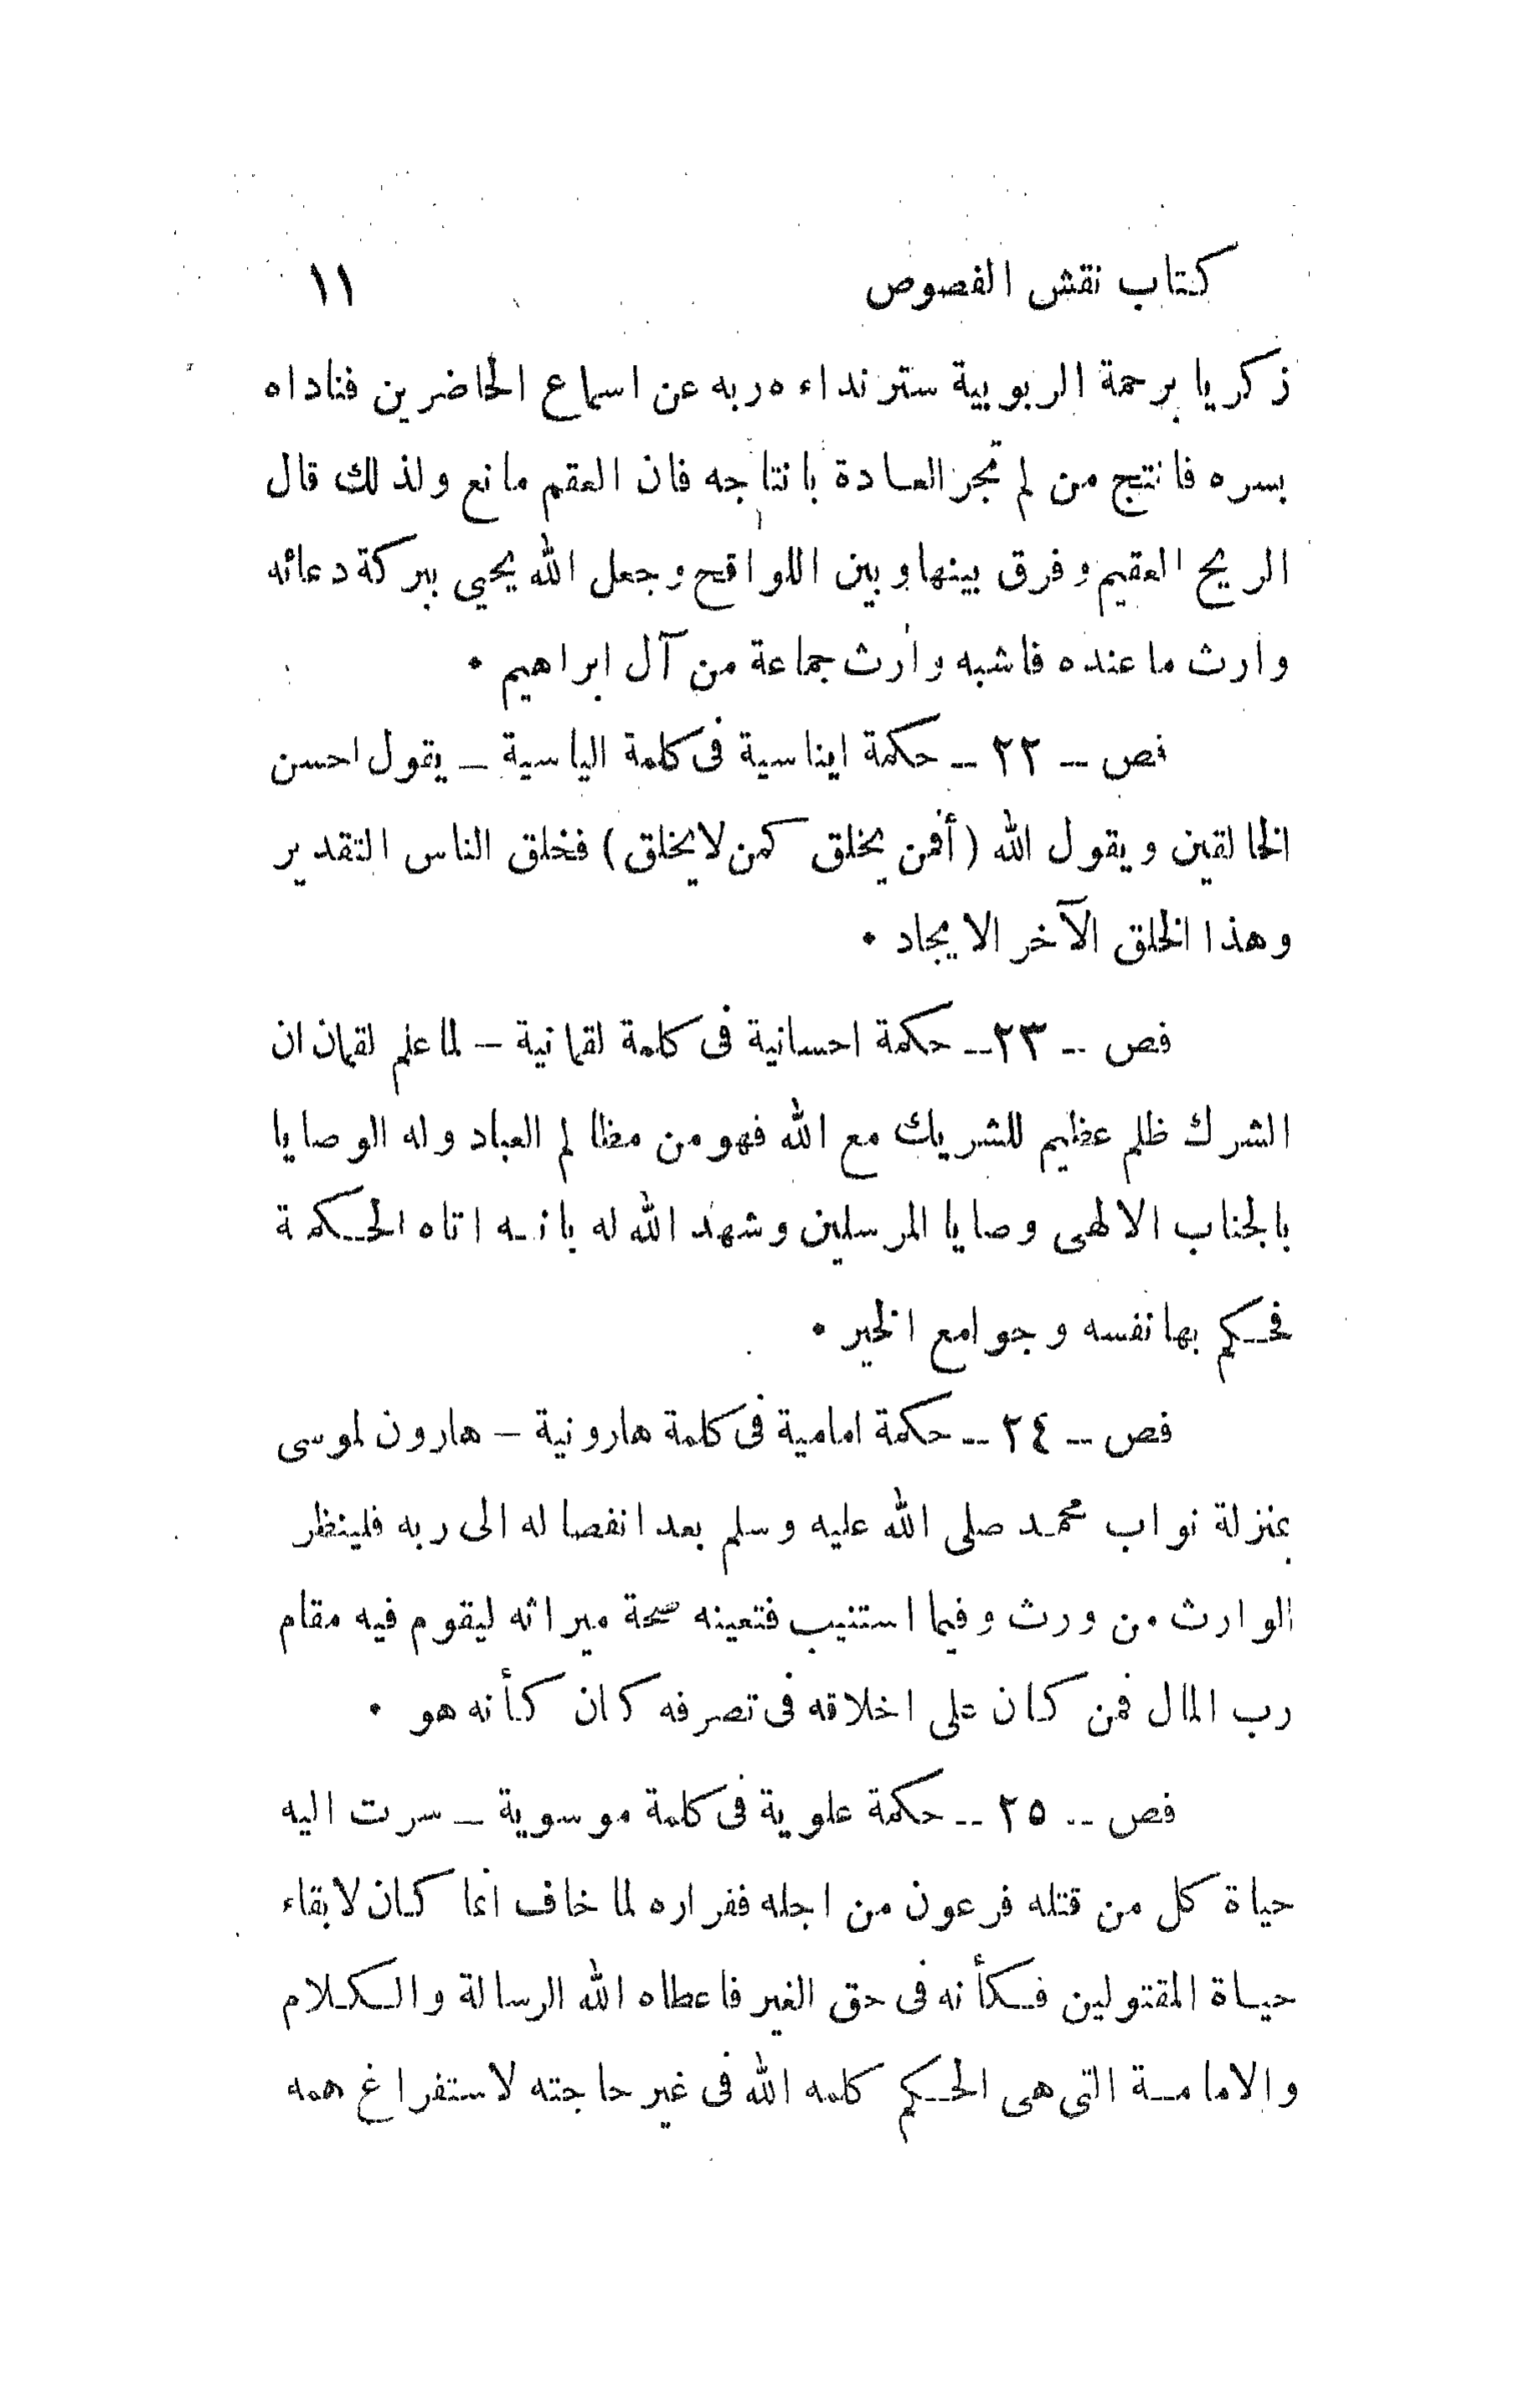 كتاب نقش الفصوص ١١
زكريا برحمة الربوبية ستر نداءه ربه عن اسماع الحاضرين فناداه
بسره فانتج من لم تجر العادة بانتاجه فان العقم مانع ولذلك قال
الريح العقيم وفرق بينها وبين اللواقح وجعل الله يحيى ببركة دعائه
وارث ما عنده فاشبه وارث جماعة من آل ابراهيم •
فص -- ٢٢ -- حكمة ايناسية فى كلمة الياسية -- يقول احسن
الخالقين ويقول الله (أفمن يخلق كمن لا يخلق) فخلق الناس التقدير
وهذا الخلق الآخر الايجاد •
فص -- ٢٣ -- حكمة احسانية فى كلمة لقمانية -- لما علم لقمان ان
الشرك ظلم عظيم للشريك مع الله فهو من مظالم العباد وله الوصايا
بالجناب الالهى وصايا المرسلين وشهد الله له بانه اتاه الحكمة
فحكم بها نفسه وجوامع الخير •
فص -- ٢٤ -- حكمة امامية فى كلمة هارونية -- هارون لموسى
بمنزلة نواب محمد صلى الله عليه وسلم بعد انفصاله الى ربه فلينظر
الوارث من ورث وفيما استنيب فتعينه صحة ميراثه ليقوم فيه مقام
رب المال فمن كان على اخلاقه فى تصرفه كان كأنه هو •
فص -- ٢٥ -- حكمة علوية فى كلمة موسوية -- سرت اليه
حياة كل من قتله فرعون من اجله ففراره لما خاف انما كان لابقاء
حياة المقتولين فكأنه فى حق الغير فاعطاه الله الرسالة والكلام
والامامة التى هى الحكم كلمه الله فى غير حاجته لاستفراغ همه